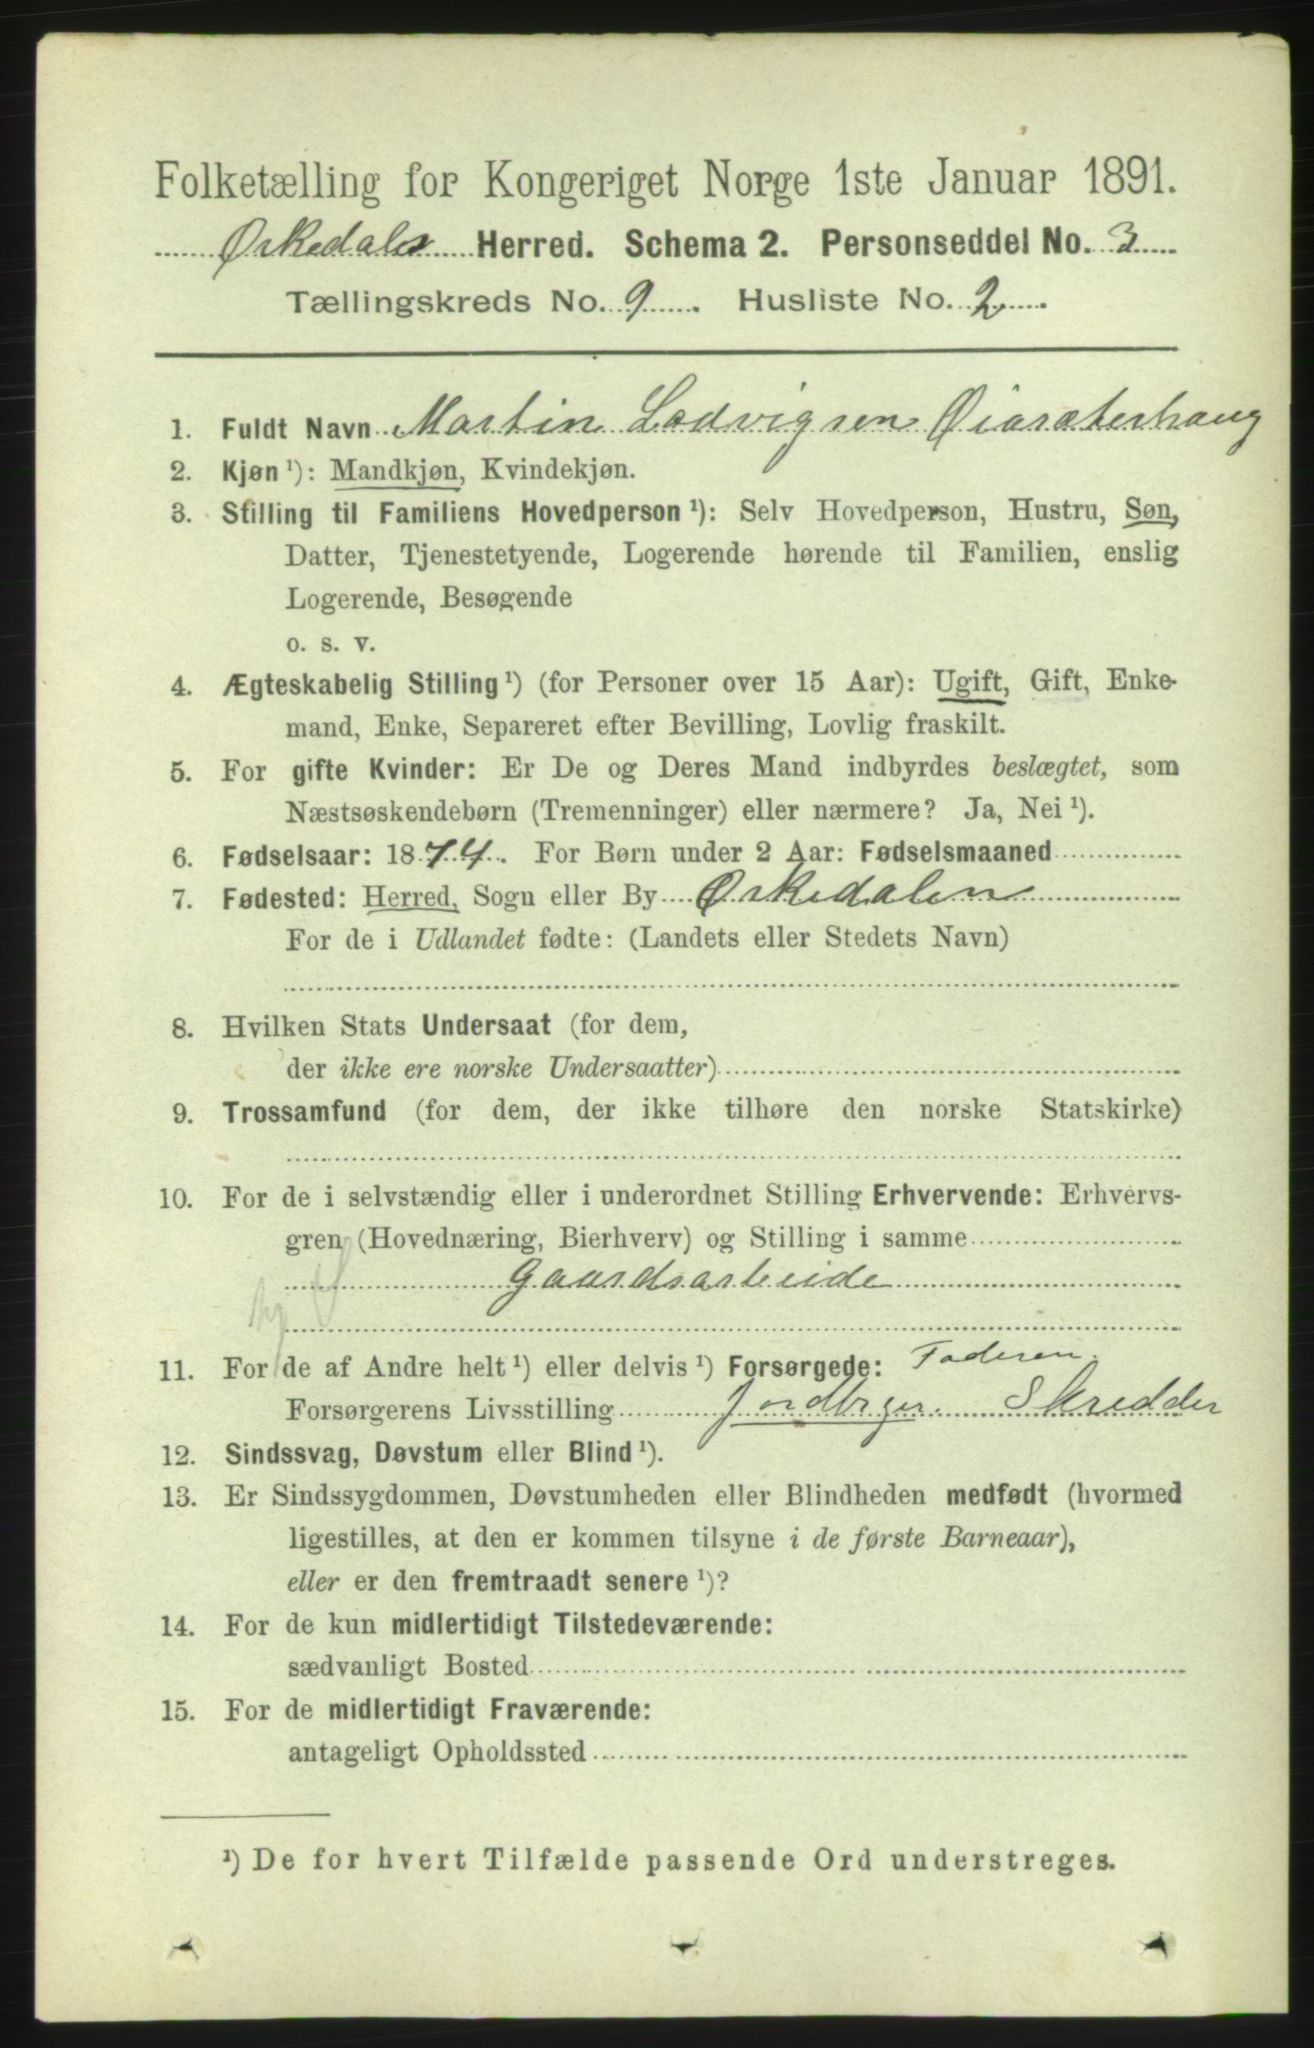 Folketælling for Kongeriget Norge 1ste Januar 1891.
Ørkedals Herred. Schema 2. Personseddel No. 3
Tællingskreds No. 9. Husliste No. 2.
1. Fuldt Navn Martin Lodvigsen Øiasæterhaug
2. Kjøn ¹): Mandkjøn, Kvindekjøn.
3. Stilling til Familiens Hovedperson ¹): Selv Hovedperson, Hustru, Søn,
Datter, Tjenestetyende, Logerende hørende til Familien, enslig
Logerende, Besøgende
o. s. v.
4. Ægteskabelig Stilling ¹) (for Personer over 15 Aar): Ugift, Gift, Enke-
mand, Enke, Separeret efter Bevilling, Lovlig fraskilt.
5. For gifte Kvinder: Er De og Deres Mand indbyrdes beslægtet, som
Næstsøskendebørn (Tremenninger) eller nærmere? Ja, Nei ¹).
6. Fødselsaar: 1874. For Børn under 2 Aar: Fødselsmaaned
7. Fødested: Herred, Sogn eller By Ørkedalen
For de i Udlandet fødte: (Landets eller Stedets Navn)
8. Hvilken Stats Undersaat (for dem,
der ikke ere norske Undersaatter)
9. Trossamfund (for dem, der ikke tilhøre den norske Statskirke)
10. For de i selvstændig eller i underordnet Stilling Erhvervende: Erhvervs-
gren (Hovednæring, Bierhverv) og Stilling i samme
Gaardsarbeide
11. For de af Andre helt ¹) eller delvis ¹) Forsørgede: Faderen.
Forsørgerens Livsstilling Jordbrger. Skredder
12. Sindssvag, Døvstum eller Blind ¹).
13. Er Sindssygdommen, Døvstumheden eller Blindheden medfødt (hvormed
ligestilles, at den er kommen tilsyne i de første Barneaar),
eller er den fremtraadt senere ¹)?
14. For de kun midlertidigt Tilstedeværende:
sædvanligt Bosted
15. For de midlertidigt Fraværende:
antageligt Opholdssted
¹) De for hvert Tilfælde passende Ord understreges.